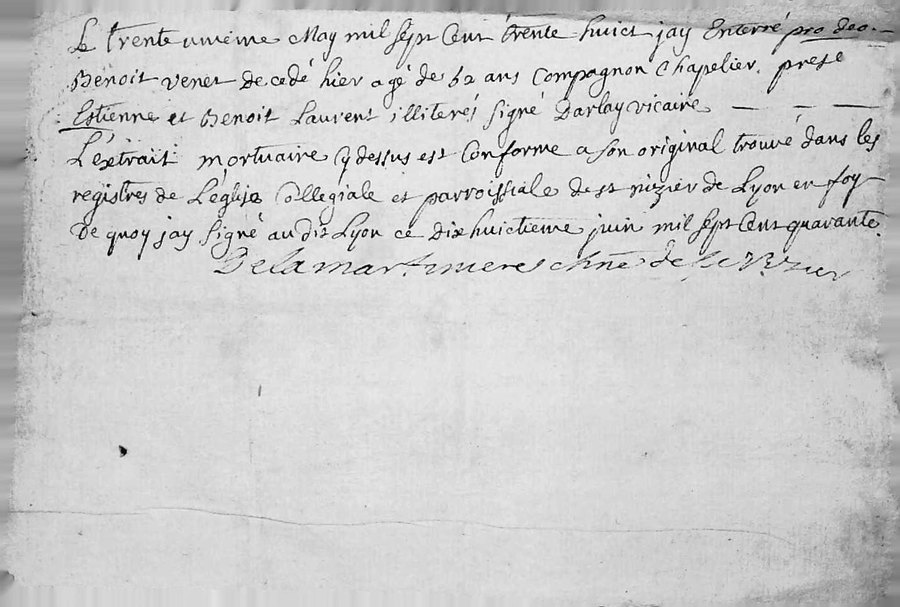 Le trente unieme May mil sept cent trente huict jay Enterré pro deo.
Benoit venet decedé hier agé de 52 ans Compagnon Chapelier. prese
Estienne et Benoit Laurent illiterés signé Darlay vicaire
L'éxtrait mortuaire cy dessus est Conforme a son original trouvé dans les
registres de L'église Collegiale et parroissiale de st nizier de Lyon en foy
de quoy jay signé audit Lyon ce dixhuictieme juin mil sept cent quarante.
Delamartiniere